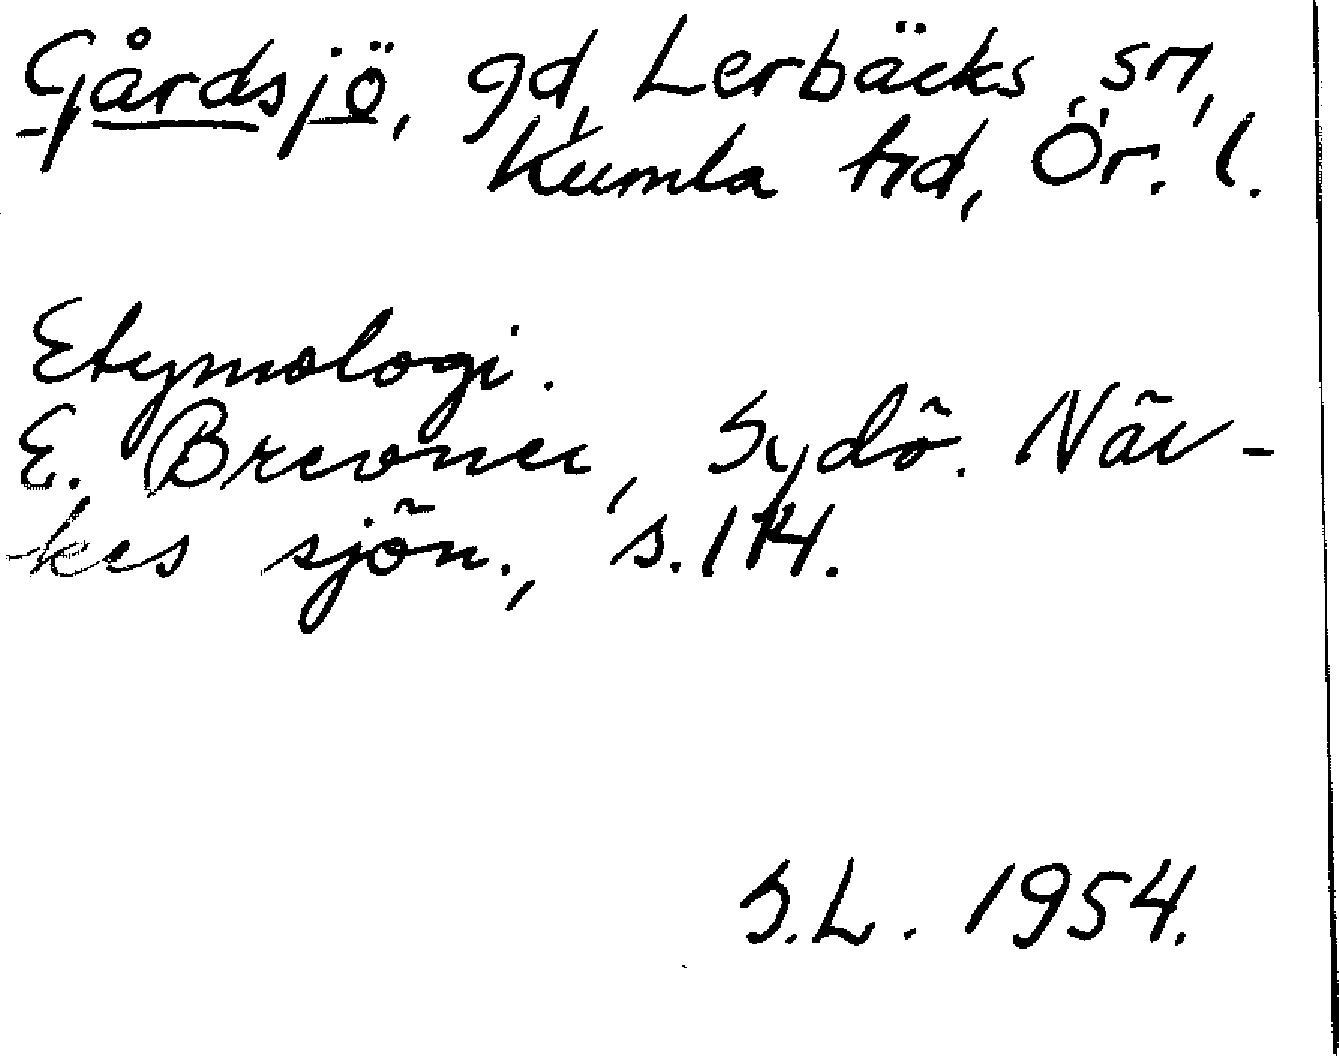 Gårdsjö, gd, Lerbäcks sn,
Kumla hd, Ör. l.
Etymologi.
E. Brevner, Sydö. När-
kes sjön., s. 114.
S.L. 1954.